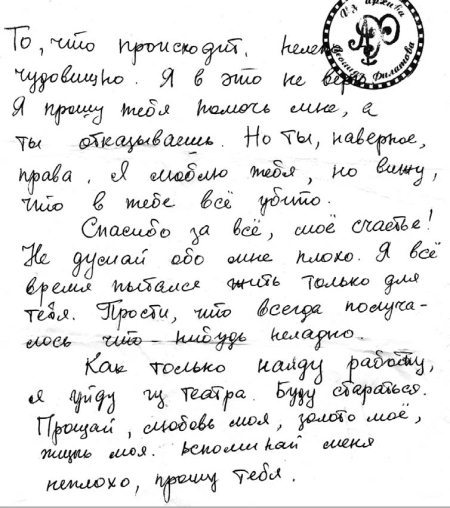 Из архива
Леонида Филатова
То, что происходит, нелепо
чудовищно. Я в это не верю
Я прошу тебя помочь мне, а
ты отказываешь. Но ты, наверное,
права. Я люблю тебя, но вижу,
что в тебе всё убито.
Спасибо за всё, моё счастье!
Не думай обо мне плохо. Я всё
время пытался жить только для
тебя. Прости, что всегда получа-
лось что-нибудь неладно.
Как только найду работу,
я уйду из театра. Буду стараться.
Прощай, любовь моя, золото моё,
жизнь моя. Вспоминай меня
неплохо, прошу тебя.